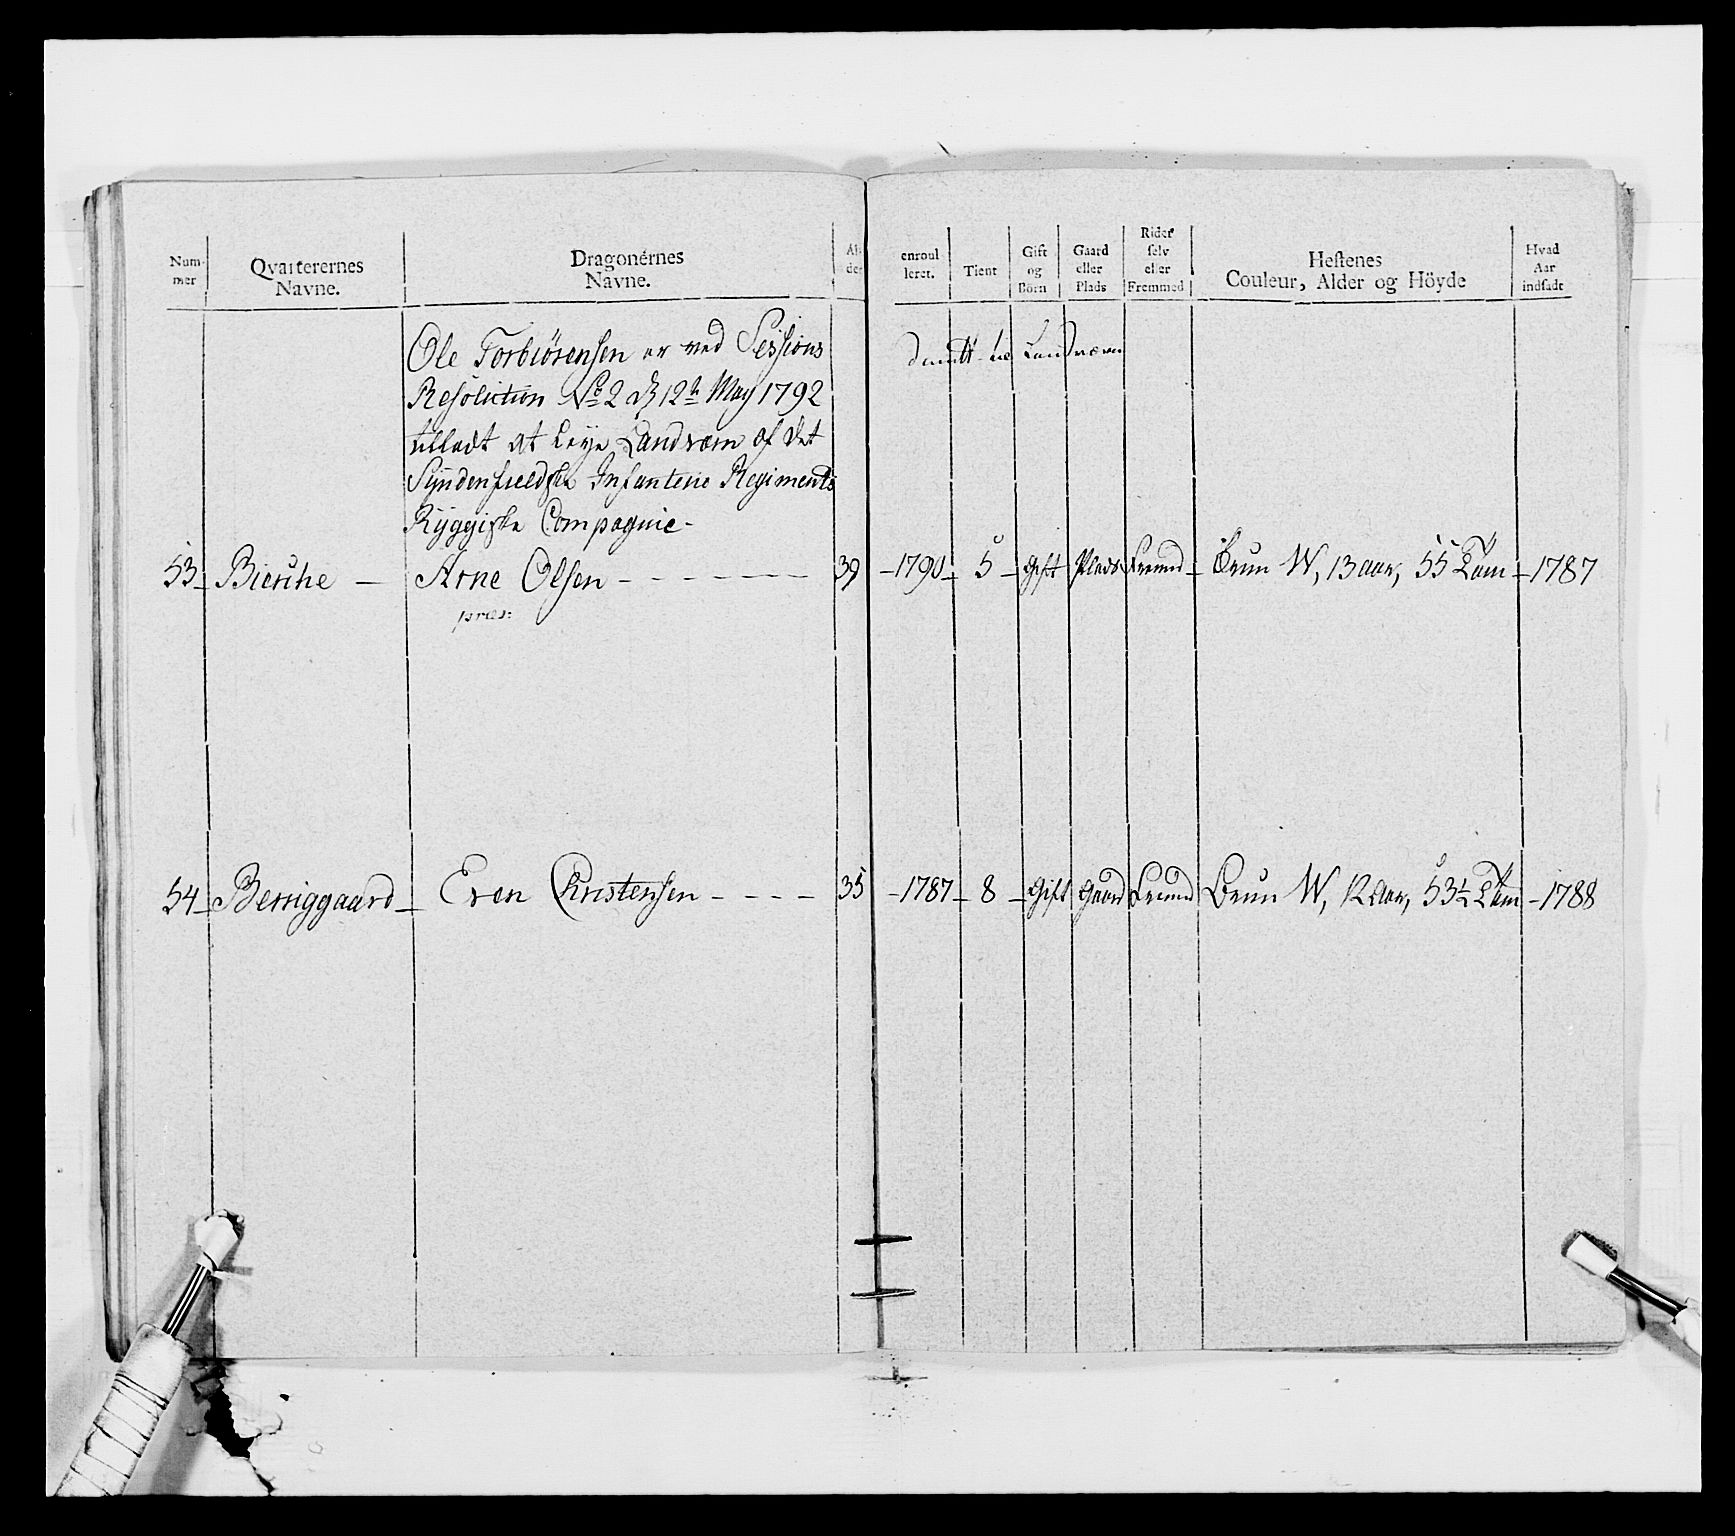 Num-
mer
Qvarterernes
Navne.
Dragonernes
Navne.
Al-
der
enroul
leret.
Tient
Gift
og
Börn
Gaard
eller
Plads
Rider
selv
eller
Fremmed
Hestenes
Couleur, Alder og Höyde
Hvad
Aar
indsadt
Ole Torbiörensen er ved Sessions
Resolution No 2 d 12te May 1792
tilladt at leye Landværn af det
Syndenfieldske Infanterie Regiments
Ryggiske Compagnie -
Landværn
53 - Bierche - Arne Olsen - - - - - - - 39 - 1790 - 5 - Gift Plads Fremd - Brun W, 13 aar, 55 Tom - 1787
præs:
54 - Berriggaard - Even Christensen - - - - 35 - 1787 - 8 - Gift Gaard Fremd Brun W, 12 Aar, 53½ Tom - 1788